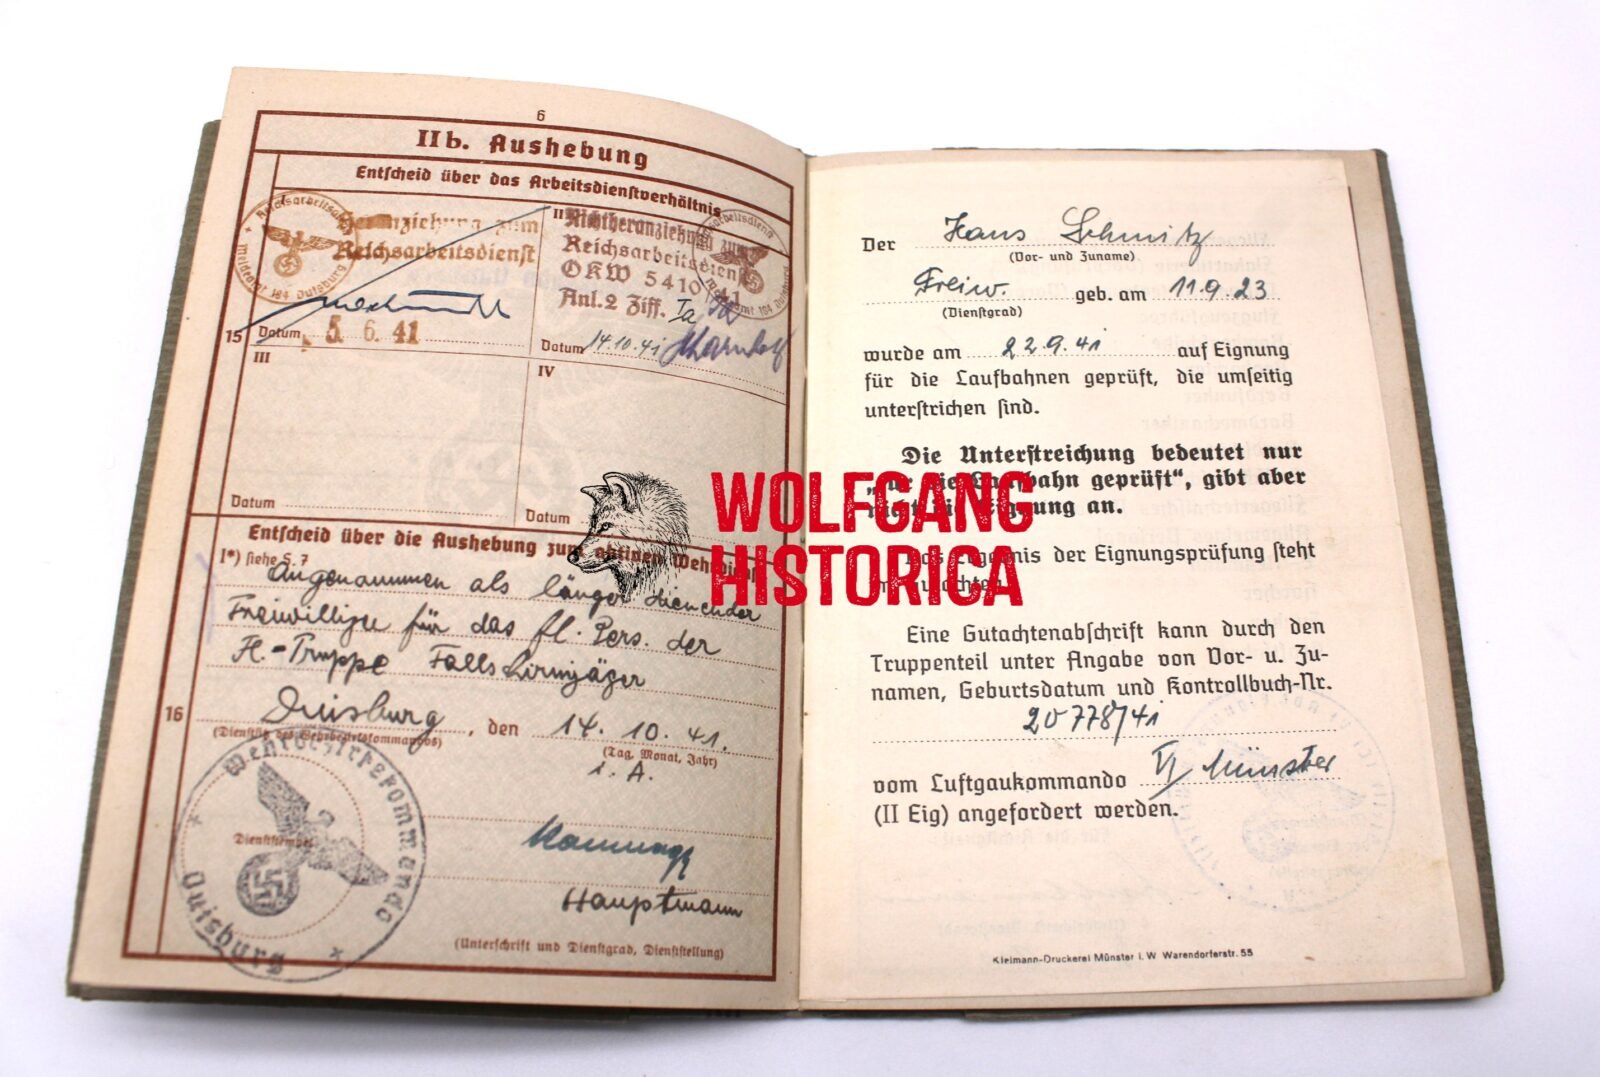 6
IIb. Aushebung
Entscheid über das Arbeitsdienstverhältnis
Heranziehung zum
Reichsarbeitsdienst
15 Datum 5. 6. 41
II
Nichtheranziehung zum
Reichsarbeitsdienst
OKW 5410/41
Anl. 2 Ziff. Ia
Datum 14.10.41
III
Datum
IV
Datum
Entscheid über die Aushebung zum aktinen Wehrdienst
I*) siehe S. 7
Angenommen als länger dienender
Freiwilliger für das fl. Pers. der
Fl.-Truppe Fallschirmjäger
16
Duisburg, den 14. 10. 41.
(Dienstsitz des Wehrbezirkskommandos)
(Tag, Monat, Jahr)
i. A.
Dienststempel
Wehrbezirkskommando
Duisburg
Hauptmann
(Unterschrift und Dienstgrad, Dienststellung)
Der Hans Schmitz
(Vor- und Zuname)
Freiw. geb. am 11.9.23
(Dienstgrad)
wurde am 22.9.41 auf Eignung
für die Laufbahnen geprüft, die umseitig
unterstrichen sind.
Die Unterstreichung bedeutet nur
„für die Laufbahn geprüft“, gibt aber
nicht die Eignung an.
Das Ergebnis der Eignungsprüfung steht
im Gutachten.
Eine Gutachtenabschrift kann durch den
Truppenteil unter Angabe von Vor- u. Zu-
namen, Geburtsdatum und Kontrollbuch-Nr.
20778/41
vom Luftgaukommando VI Münster
(II Eig) angefordert werden.
Kleimann-Druckerei Münster i. W Warendorferstr. 55
WOLFGANG
HISTORICA